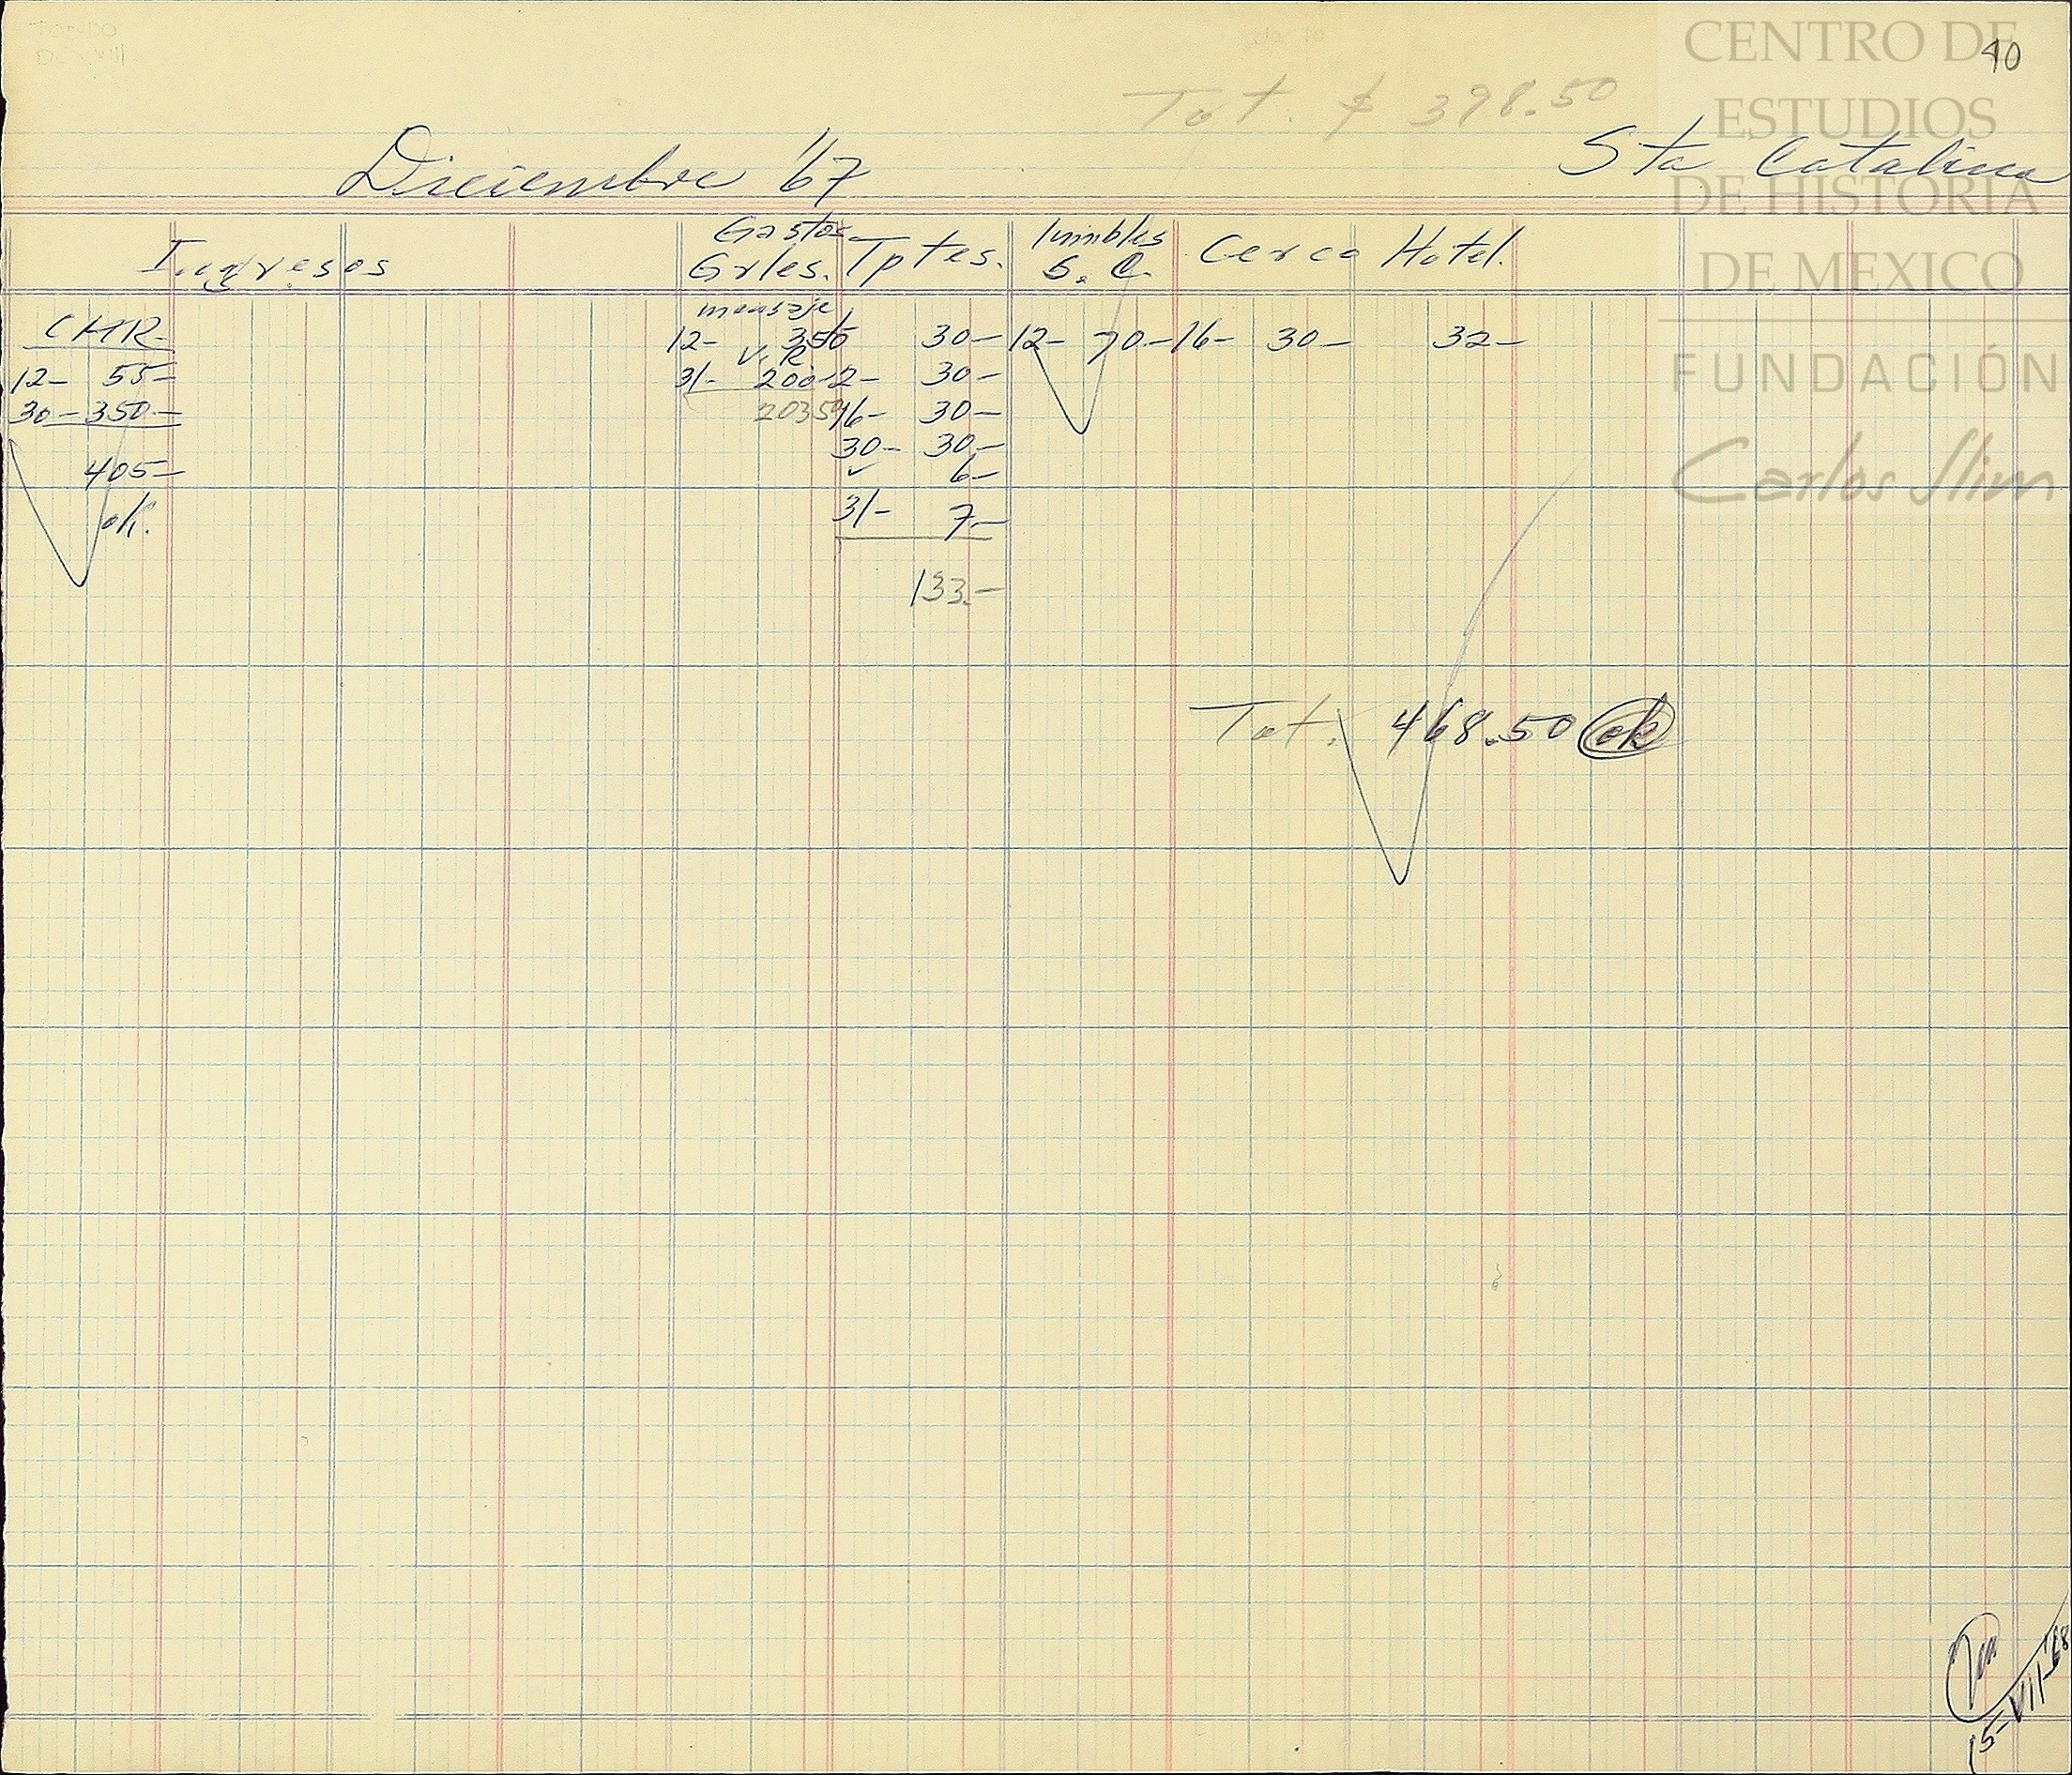 40
Tot. $ 398.50
Diciembre '67
Sta Catalina
Ingresos
Gastos Grles.
Tptes.
Inmbles S. C.
Cerca
Hotel.
CMR-
12- 55-
30- 350-
405-
ok.
mensaje
12- 350
V. R
31- 200-
20350
30-
12- 30-
16- 30-
30- 30-
✓ 6-
31- 7-
133.-
12- 70-
16- 30-
32-
Tot. 468.50 ok
15-VII-68
CENTRO DE
ESTUDIOS
DE HISTORIA
DE MEXICO
FUNDACIÓN
Carlos Slim